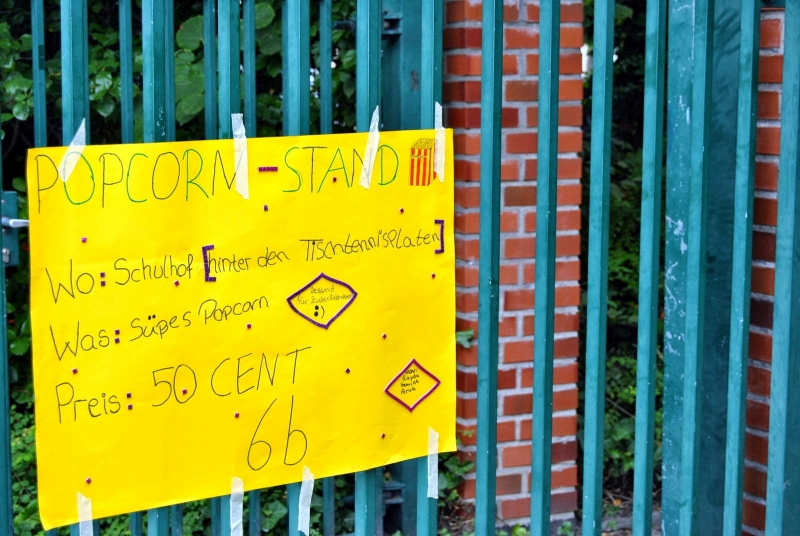 POPCORN-STAND
Wo: Schulhof [hinter den Tischtennisplaten]
Was: Süpes Popcorn
Gesund
für
:)
Preis: 50 CENT
6b